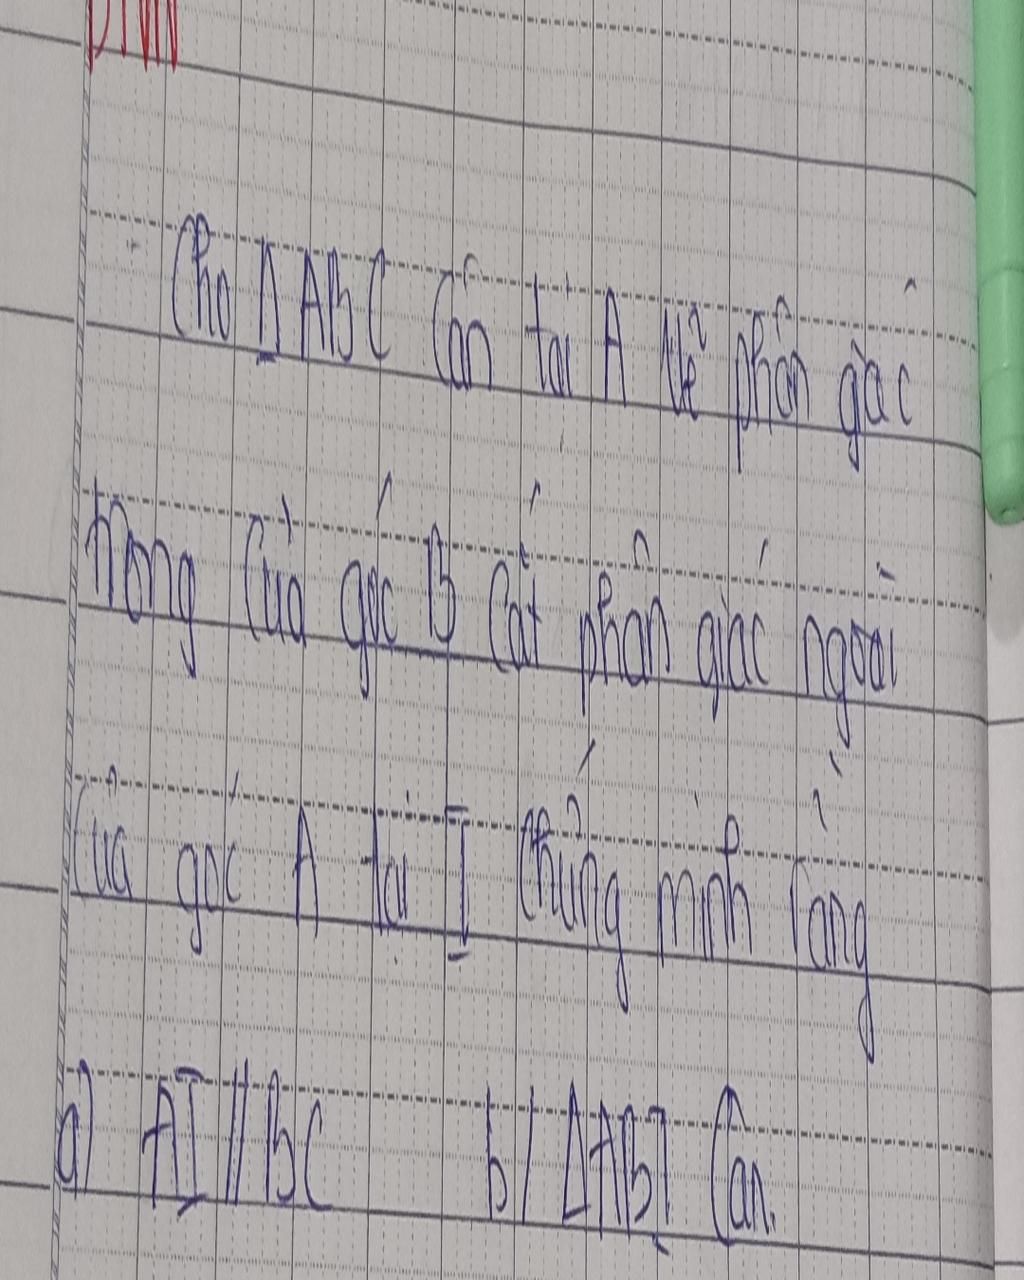 Cho Δ ABC Cân tại A Vẽ phân giác
trong Của góc B Cắt phân giác ngoài
Của góc A tại I Chứng minh rằng
a) AI // BC b/ ΔABI Cân.